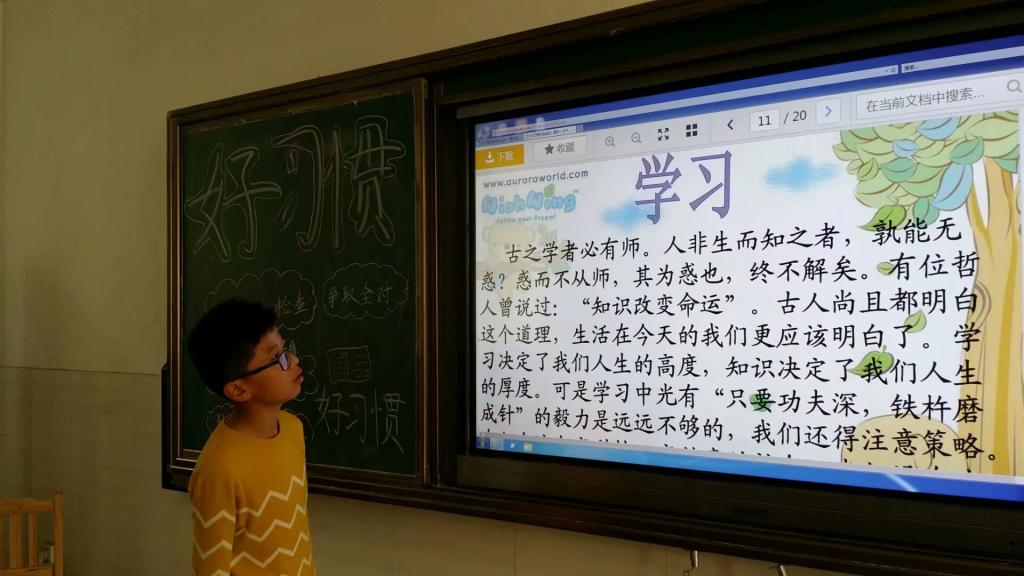 好习惯
检查
争取全对
好习惯
下载
收藏
11 / 20
在当前文档中搜索...
www.auroraworld.com
WishWing™
Follow your Dream!
学习
古之学者必有师。人非生而知之者，孰能无
惑？惑而不从师，其为惑也，终不解矣。有位哲
人曾说过：“知识改变命运”。古人尚且都明白
这个道理，生活在今天的我们更应该明白了。学
习决定了我们人生的高度，知识决定了我们人生
的厚度。可是学习中光有“只要功夫深，铁杵磨
成针”的毅力是远远不够的，我们还得注意策略。